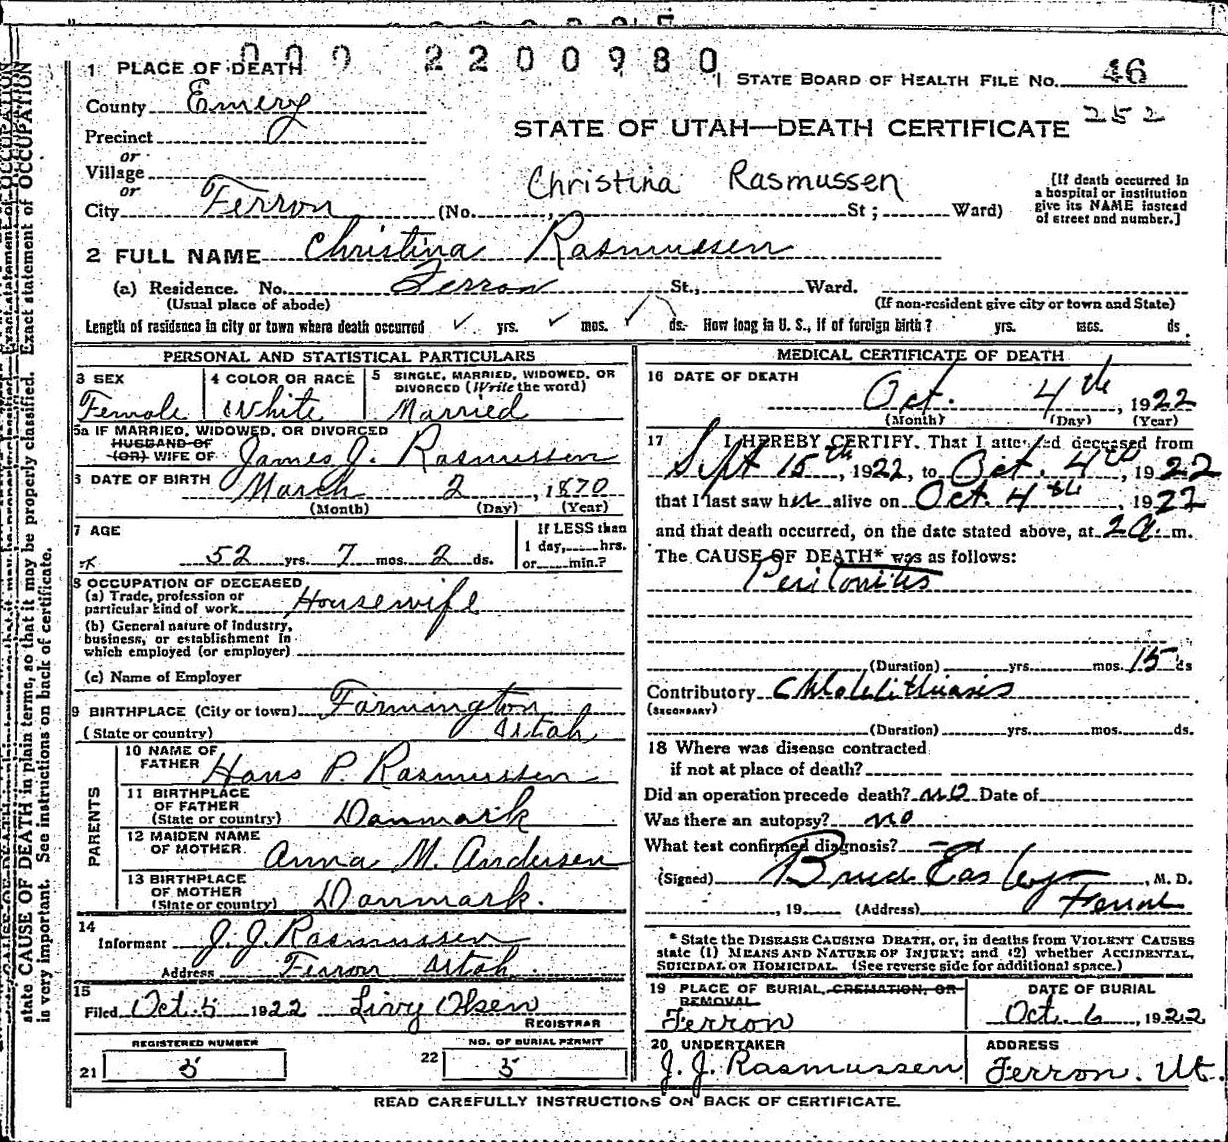 000 2200980
1 PLACE OF DEATH
STATE BOARD OF HEALTH FILE No. 46
County Emery
252
Precinct
STATE OF UTAH—DEATH CERTIFICATE
or
Village
Christina Rasmussen
or
City Ferron (No. St; Ward)
[If death occurred in
a hospital or institution
give its NAME instead
of street and number.]
2 FULL NAME Christina Rasmussen
(a) Residence. No. Ferron St., Ward.
(Usual place of abode) (If non-resident give city or town and State)
Length of residence in city or town where death occurred ✓ yrs. ✓ mos. ✓ ds. How long in U. S., if of foreign birth? yrs. mos. ds.
PERSONAL AND STATISTICAL PARTICULARS
3 SEX
Female
4 COLOR OR RACE
White
5 SINGLE, MARRIED, WIDOWED, OR
DIVORCED (Write the word)
Married
5a IF MARRIED, WIDOWED, OR DIVORCED
HUSBAND OF
(OR) WIFE OF James J. Rasmussen
6 DATE OF BIRTH March 2, 1870
(Month) (Day) (Year)
7 AGE
52 yrs. 7 mos. 2 ds.
If LESS than
1 day, hrs.
or min.?
8 OCCUPATION OF DECEASED
(a) Trade, profession or
particular kind of work Housewife
(b) General nature of industry,
business, or establishment in
which employed (or employer)
(c) Name of Employer
9 BIRTHPLACE (City or town) Farmington
(State or country) Utah
PARENTS
10 NAME OF
FATHER Hans P. Rasmussen
11 BIRTHPLACE
OF FATHER
(State or country) Danmark
12 MAIDEN NAME
OF MOTHER Anna M. Andersen
13 BIRTHPLACE
OF MOTHER
(State or country) Danmark.
14
Informant J. J. Rasmussen
Address Ferron Utah.
15
Filed Oct. 5 1922 Livy Olsen
REGISTRAR
REGISTERED NUMBER
21 5
NO. OF BURIAL PERMIT
22 5
MEDICAL CERTIFICATE OF DEATH
16 DATE OF DEATH
Oct. 4th, 1922
(Month) (Day) (Year)
17 I HEREBY CERTIFY, That I attended deceased from
Sept 15th, 1922, to Oct. 4th, 1922
that I last saw her alive on Oct. 4th, 1922
and that death occurred, on the date stated above, at 2 a. m.
The CAUSE OF DEATH* was as follows:
Peritonitis
(Duration) yrs. mos. 15 ds
Contributory Cholelithiasis
(SECONDARY)
(Duration) yrs. mos. ds.
18 Where was disease contracted
if not at place of death?
Did an operation precede death? no Date of
Was there an autopsy? no
What test confirmed diagnosis?
(Signed) Bruce Easley, M. D.
, 19 (Address) Ferron
* State the DISEASE CAUSING DEATH, or, in deaths from VIOLENT CAUSES
state (1) MEANS AND NATURE OF INJURY; and (2) whether ACCIDENTAL,
SUICIDAL OR HOMICIDAL. (See reverse side for additional space.)
19 PLACE OF BURIAL, CREMATION, OR
REMOVAL
Ferron
DATE OF BURIAL
Oct. 6, 1922
20 UNDERTAKER
J. J. Rasmussen
ADDRESS
Ferron. Ut.
READ CAREFULLY INSTRUCTIONS ON BACK OF CERTIFICATE.
state CAUSE OF DEATH in plain terms, so that it may be properly classified. Exact statement of OCCUPATION
is very important. See instructions on back of certificate.